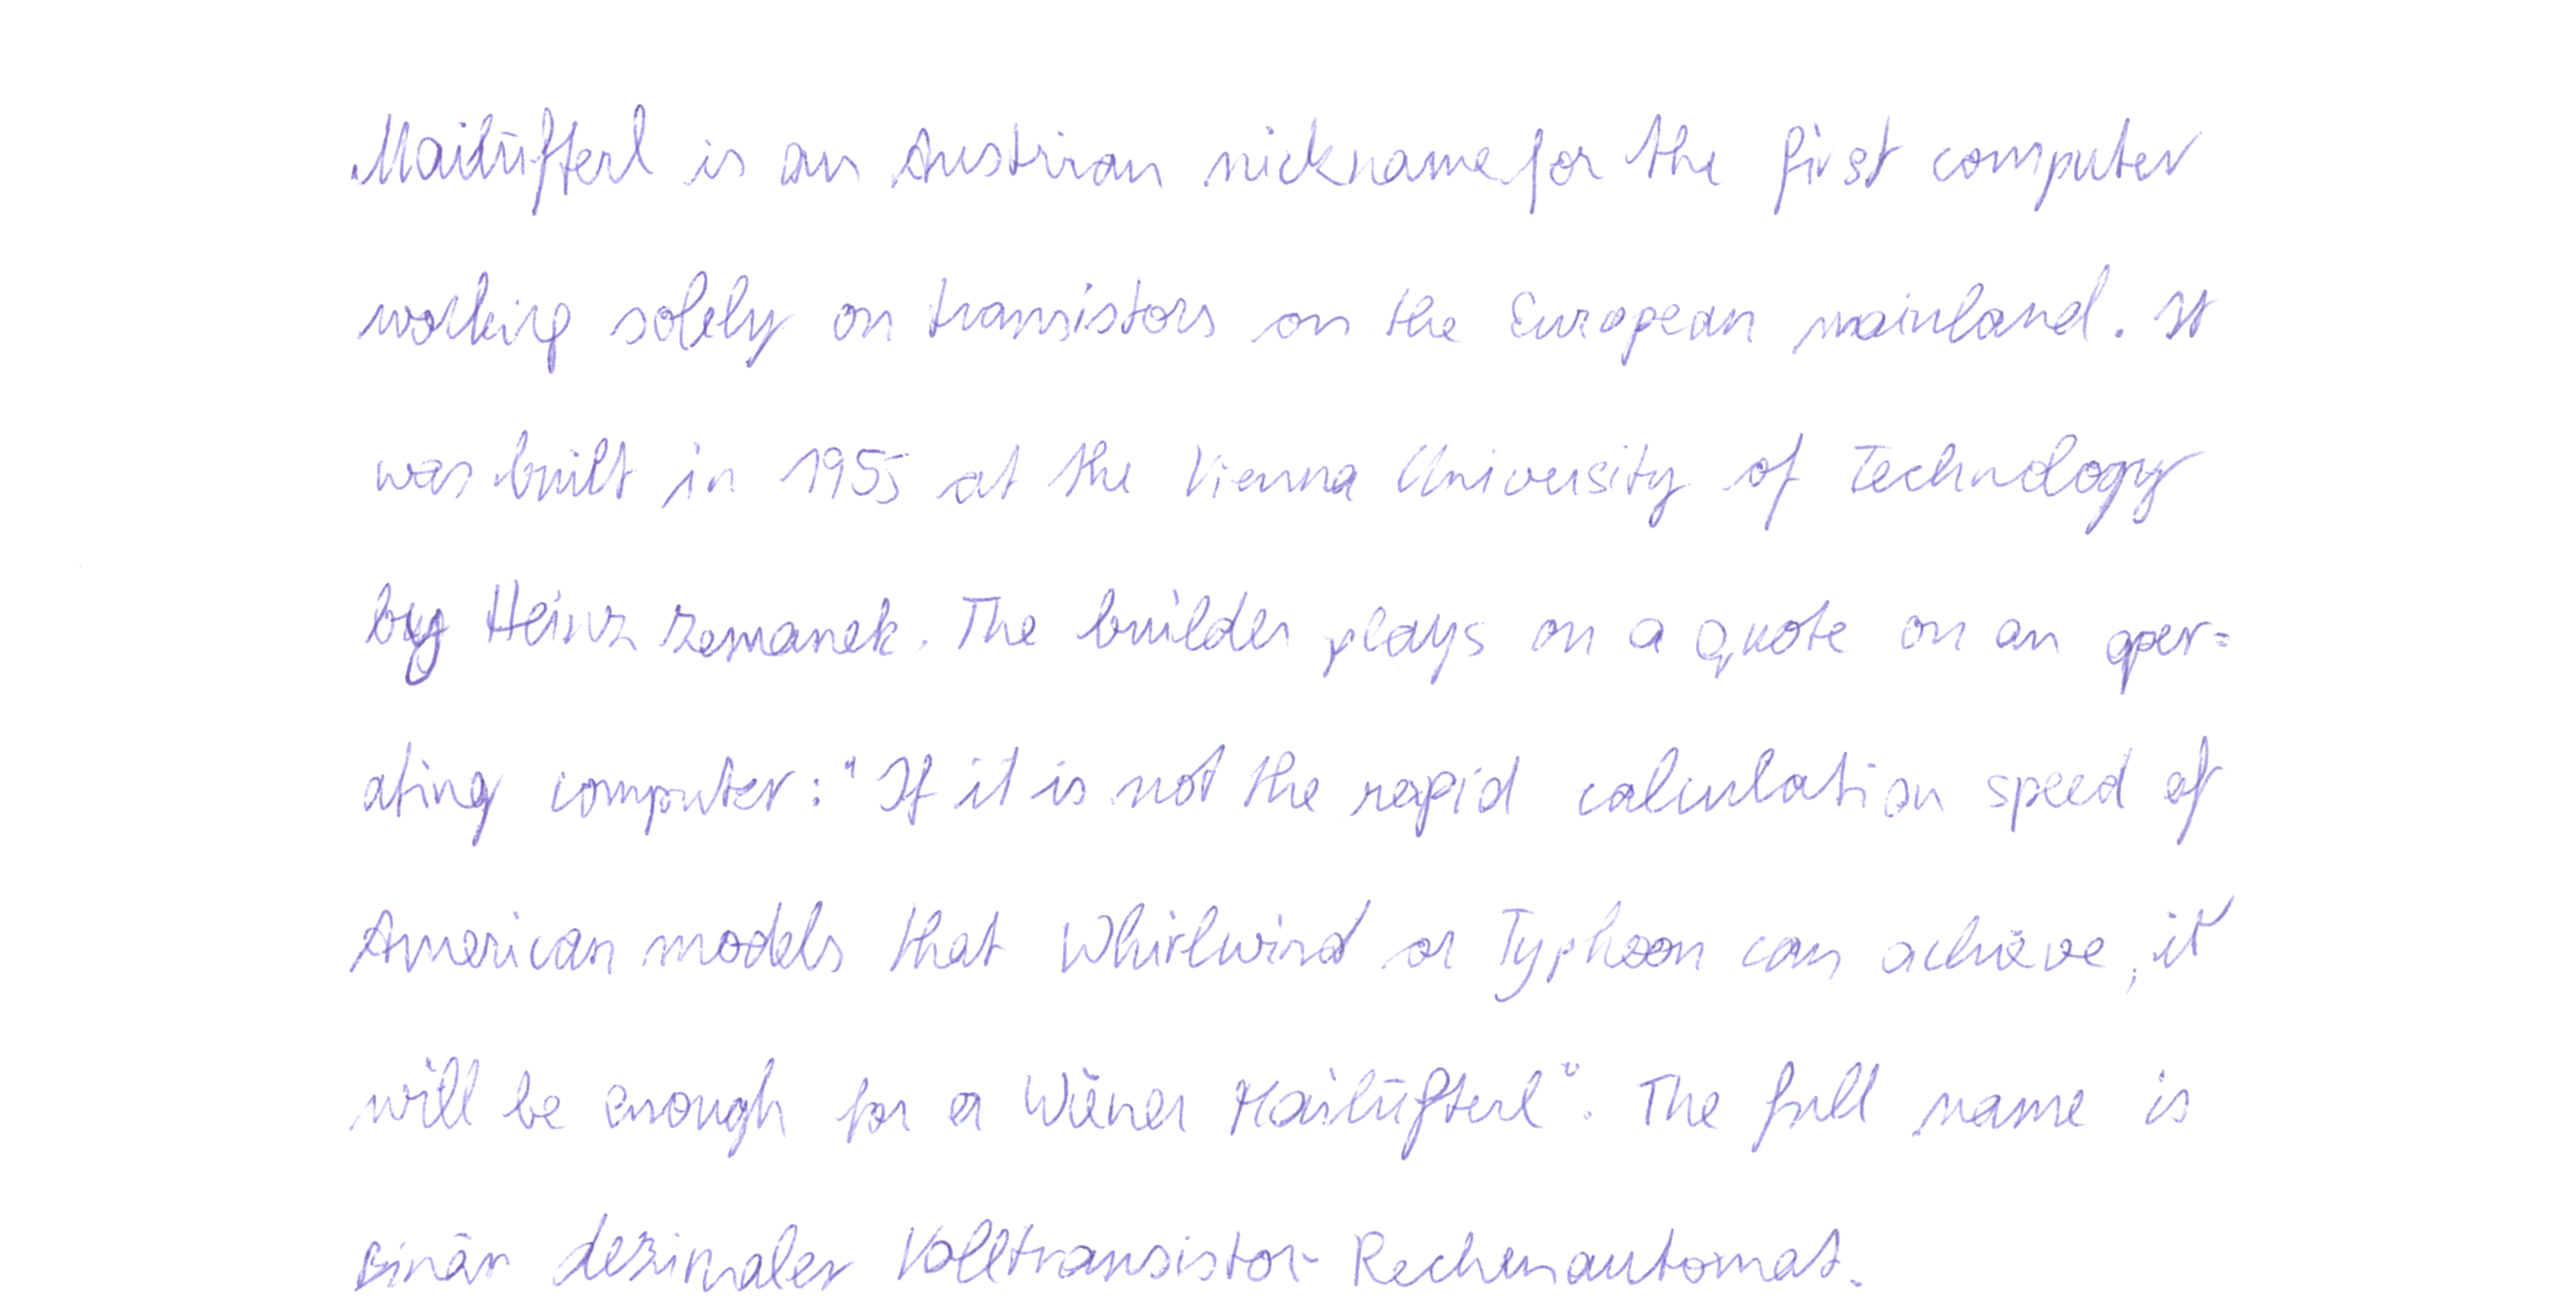 Mailüfterl is an Austrian nickname for the first computer
working solely on transistors on the European mainland. It
was built in 1955 at the Vienna University of Technology
by Heinz Zemanek. The builder plays on a quote on an oper=
ating computer: "If it is not the rapid calculation speed of
American models that Whirlwind or Typhoon can achieve, it
will be enough for a Wiener Mailüfterl". The full name is
Binär dezimaler Volltransistor-Rechenautomat.